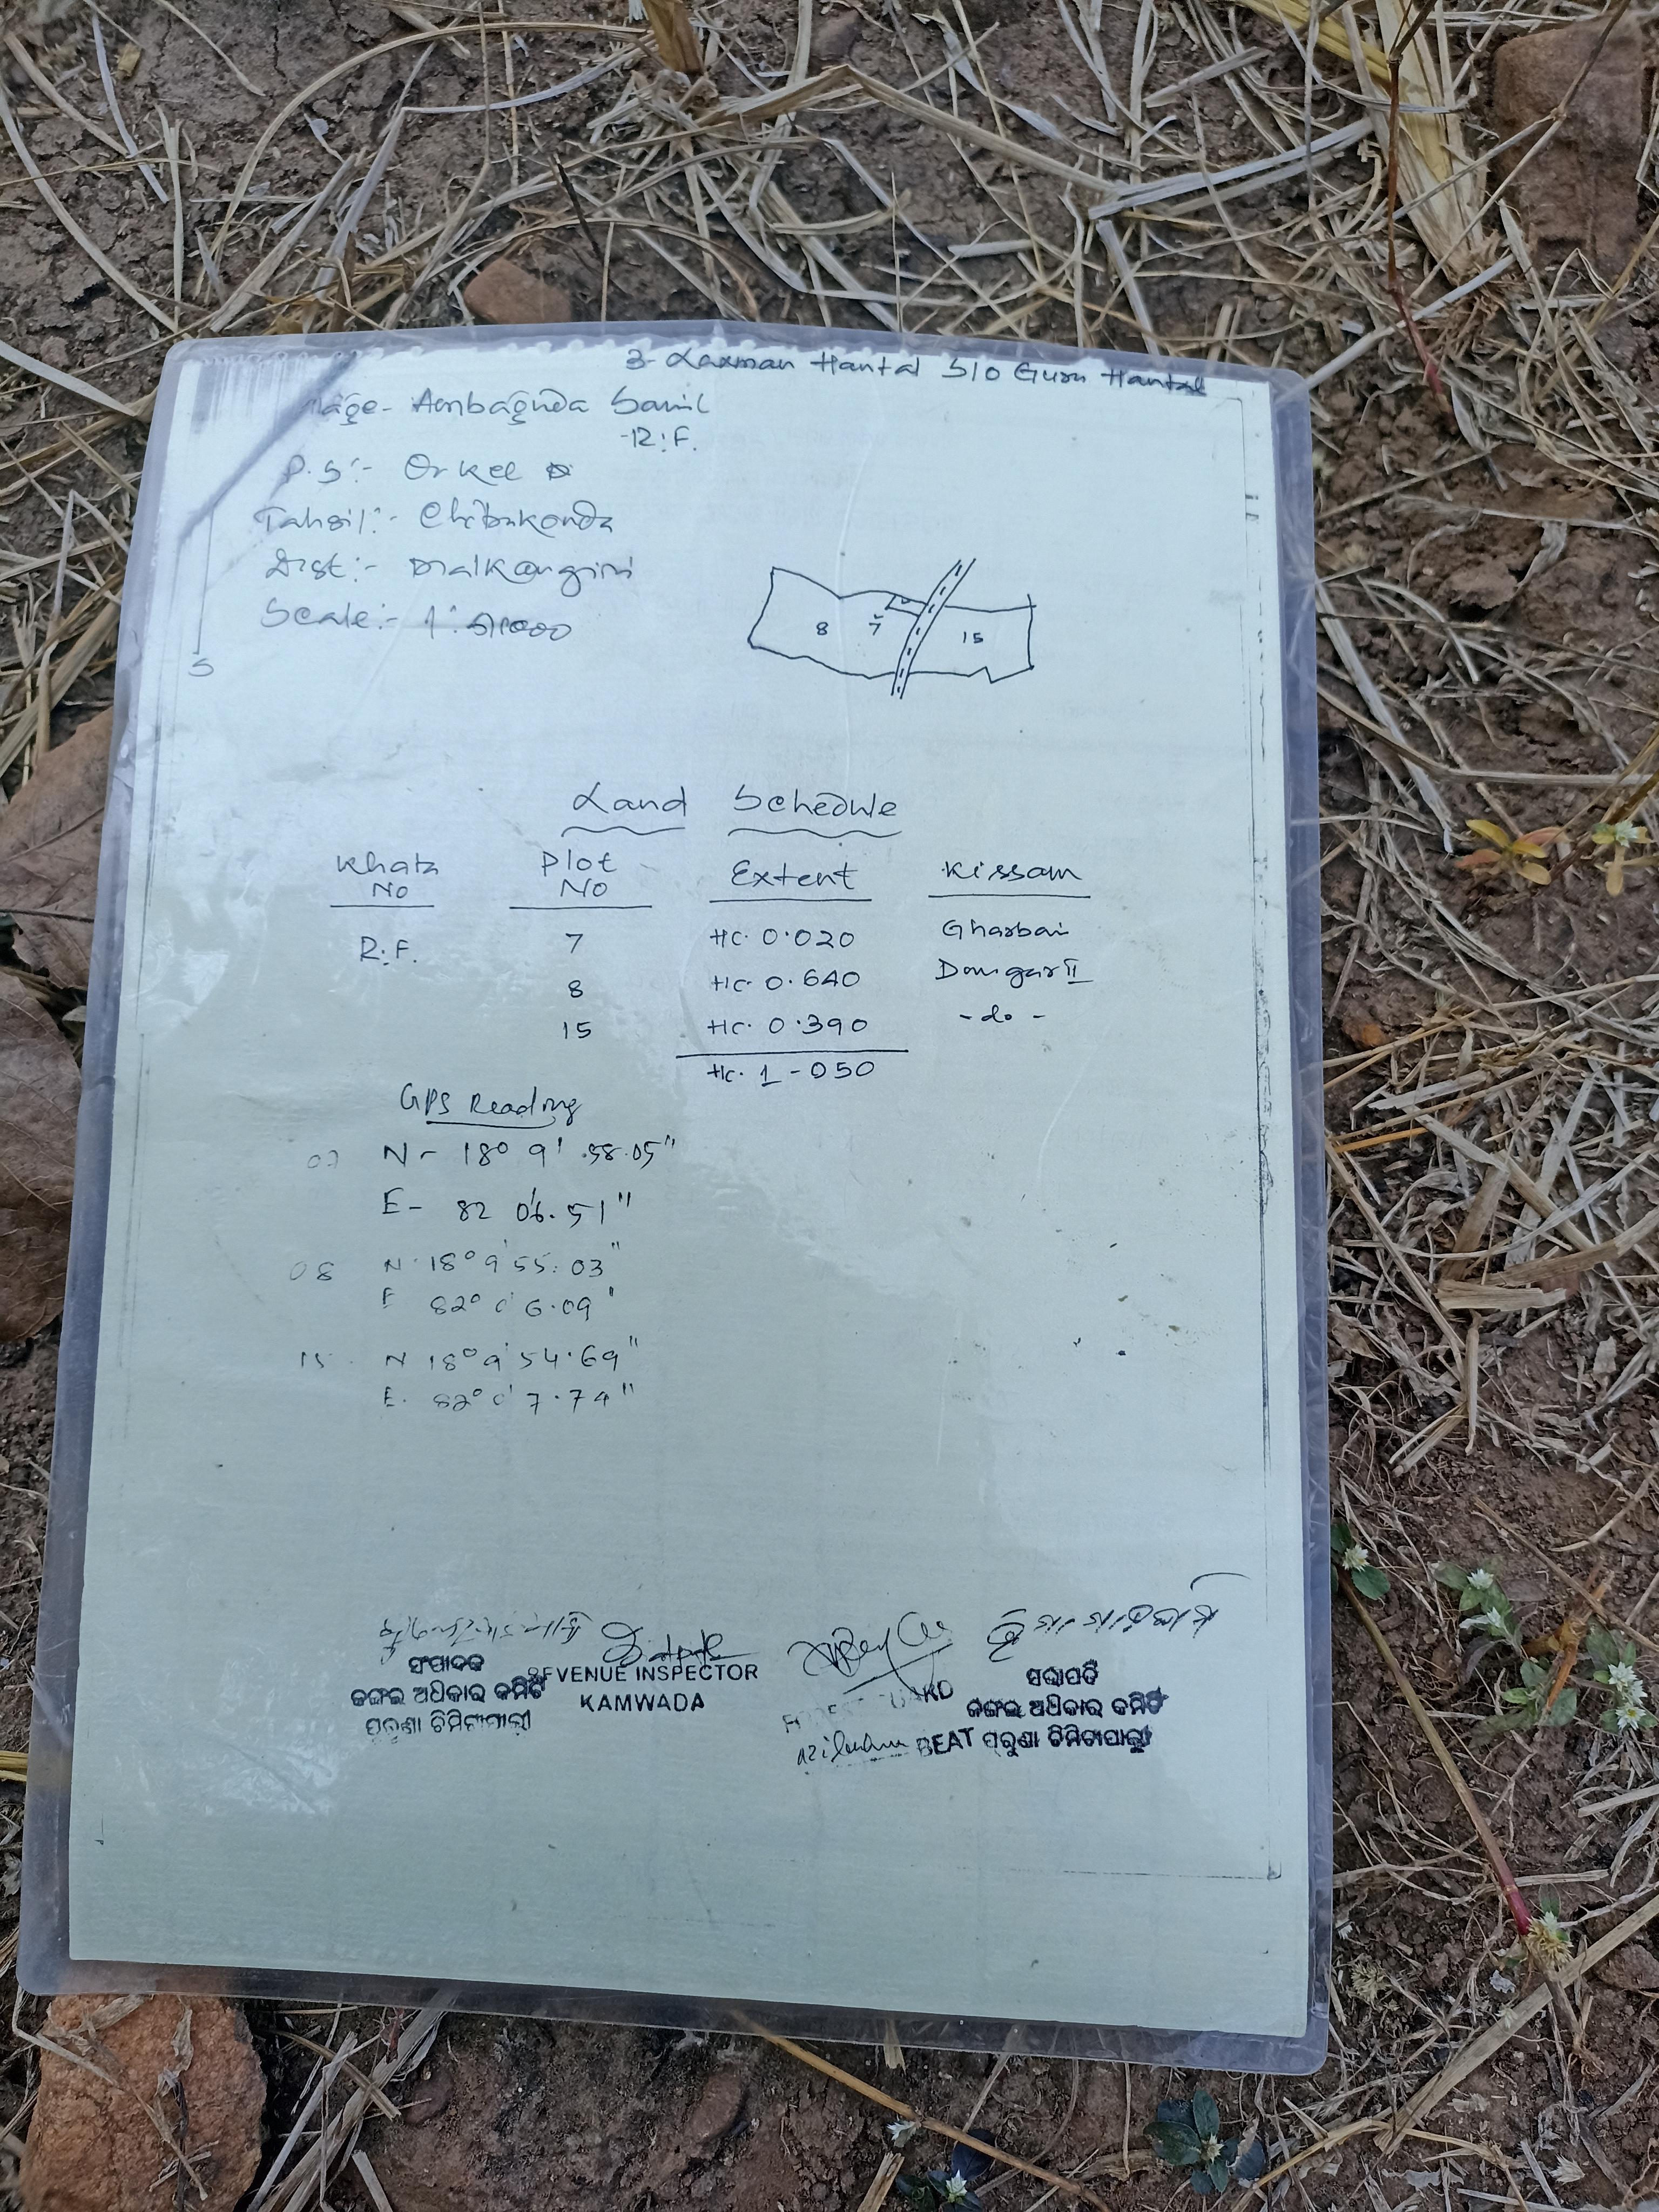 3- Laxman Hantal S/O Guru Hantal
age- Ambaguda Samil
R.F.
P.S:- Orkel
Tahsil:- Chitrakonda
Dist:- Malkangiri
Scale:-
S
8 7 15
Land Schedule
Khata No Plot No Extent Kissam
R.F. 7 Hc. 0.020 Gharbari
8 Hc. 0.640 Dongar II
15 Hc. 0.390 -do-
Hc. 1-050
GPS Reading
07 N- 18° 9' 58.05"
E- 82 0'6.51"
08 N 18° 9' 55.03"
E 82° 0' 6.09"
15 N 18° 9' 54.69"
E. 82° 0' 7.74"
ସଂପାଦକ
ଜଙ୍ଗଲ ଅଧିକାର କମିଟି
ପୁରୁଣା ଚିମିଟାପାଲ୍ଲୀ
REVENUE INSPECTOR
KAMWADA
FOREST GUARD
BEAT
ସଭାପତି
ଜଙ୍ଗଲ ଅଧିକାର କମିଟି
ପୁରୁଣା ଚିମିଟାପାଲ୍ଲୀ